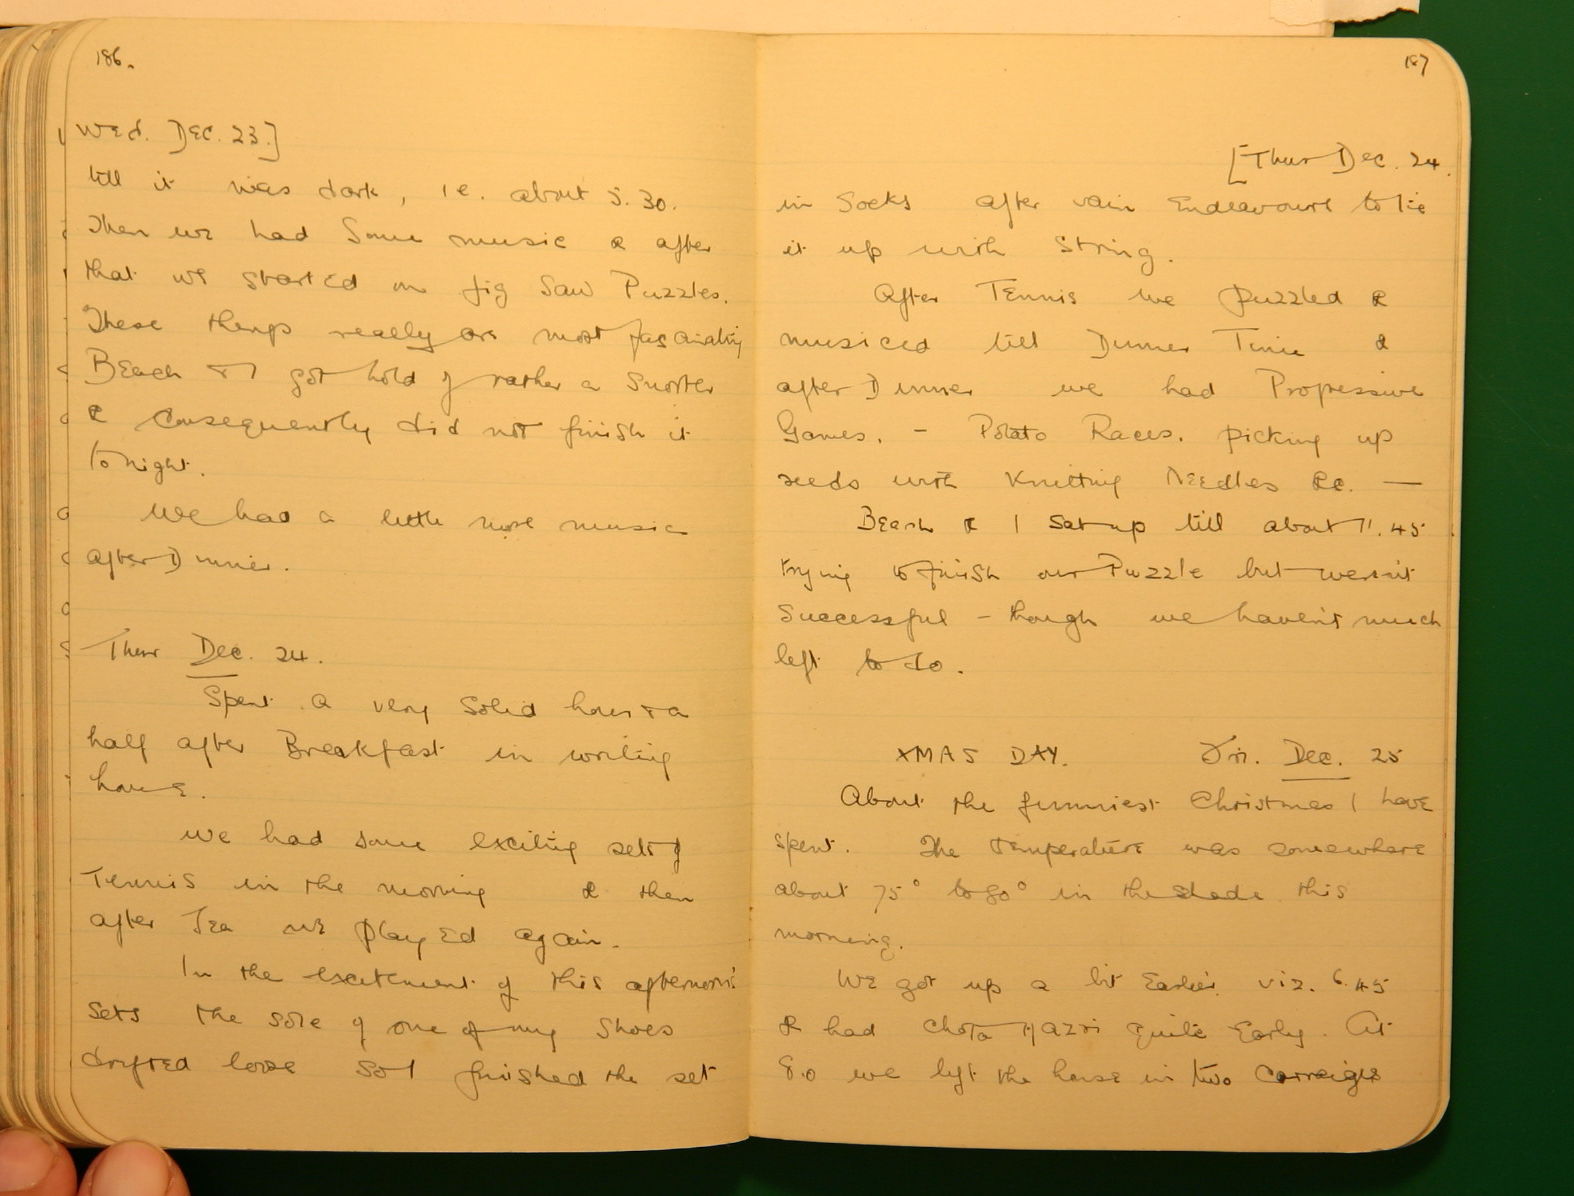 186.
Wed. Dec. 23.]
till it was dark, i.e. about 5.30.
Then we had some music & after
that we started on Jig Saw Puzzles.
These things really are most fascinating
Beach & I got hold of rather a Snorter
& consequently did not finish it
tonight.
We had a little more music
after Dinner.
Thur Dec. 24.
Spent a very solid hour & a
half after Breakfast in writing
home.
We had some exciting sets of
Tennis in the morning & then
after Tea we played again.
In the excitement of this afternoon's
sets the sole of one of my shoes
drifted loose so I finished the set
187
[Thur Dec. 24.
in Socks after vain Endeavours to tie
it up with string.
After Tennis we puzzled &
musiced till Dinner Time &
after Dinner we had Progressive
Games. - Potato Races. picking up
seeds with Knitting Needles &c. —
Beach & I sat up till about 11.45
trying to finish our Puzzle but weren't
Successful - though we haven't much
left to do.
XMAS DAY. Fri. Dec. 25
About the funniest Christmas I have
spent. The temperature was somewhere
about 75° to 80° in the shade this
morning.
We got up a bit Earlier viz. 6.45
& had Chota Hazri quite Early. At
8.0 we left the house in two Carraiges